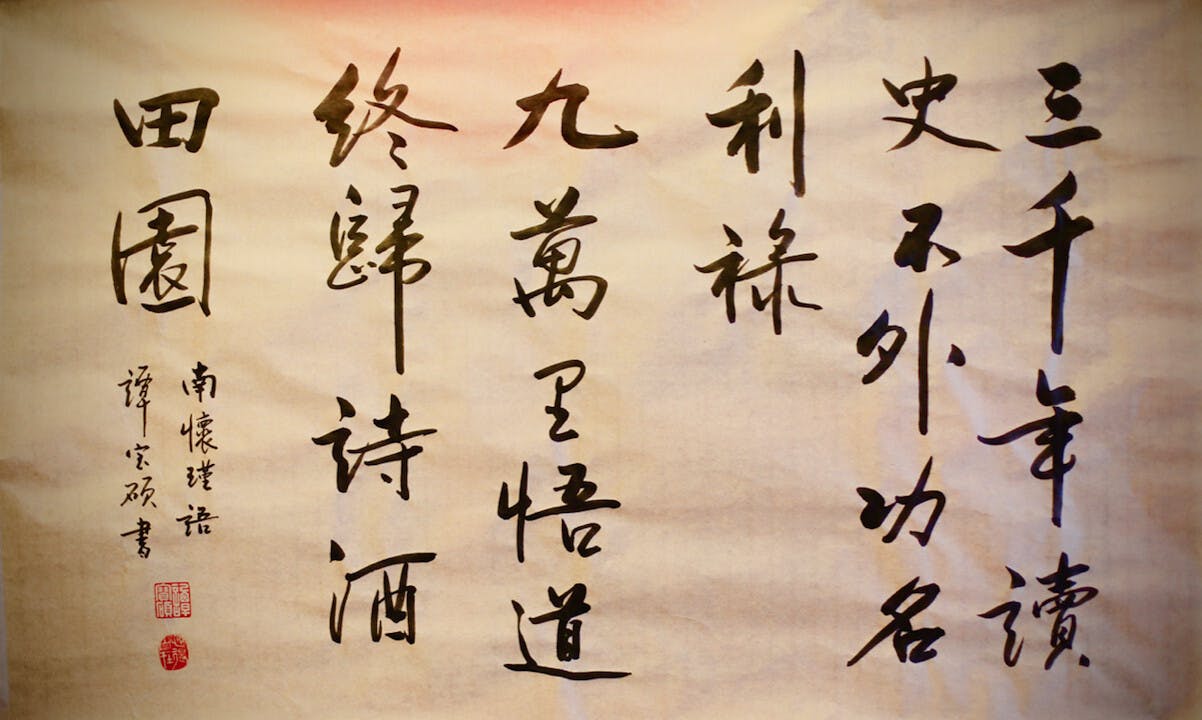 三千年讀
史不外功名
利祿
九萬里悟道
終歸詩酒
田園
南懷瑾語
譚宝碩書